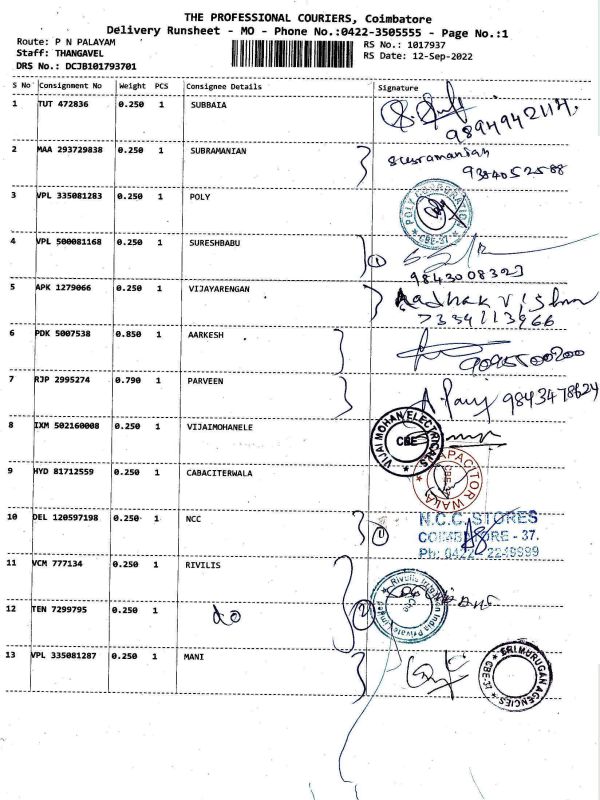 THE PROFESSIONAL COURIERS, Coimbatore
Delivery Runsheet - MO - Phone No.:0422-3505555 - Page No.:1
Route: P N PALAYAM
Staff: THANGAVEL
DRS No.: DCJB101793701
RS No.: 1017937
RS Date: 12-Sep-2022
S No Consignment No Weight PCS Consignee Details Signature
1 TUT 472836 0.250 1 SUBBAIA
9894942114
2 MAA 293729838 0.250 1 SUBRAMANIAN
Subramanian
9384052588
3 VPL 335081283 0.250 1 POLY
POLY CORPORATION
CBE-37
4 VPL 500081168 0.250 1 SURESHBABU
1
9843008323
5 APK 1279066 0.250 1 VIJAYARENGAN
7339113966
6 PDK 5007538 0.850 1 AARKESH
9095500200
7 RJP 2995274 0.790 1 PARVEEN
9843478624
8 IXM 502160008 0.250 1 VIJAIMOHANELE
VIJAI MOHAN ELECTRICALS
CBE
9 HYD 81712559 0.250 1 CABACITERWALA
CAPACITOR WALA
10 DEL 120597198 0.250 1 NCC
N.C.C. STORES
COIMBATORE - 37.
Ph: 0422 - 2249999
11 VCM 777134 0.250 1 RIVILIS
Rivulis Irrigation India Private Limited
12 TEN 7299795 0.250 1 do
2
13 VPL 335081287 0.250 1 MANI
SRI MURUGAN AGENCIES